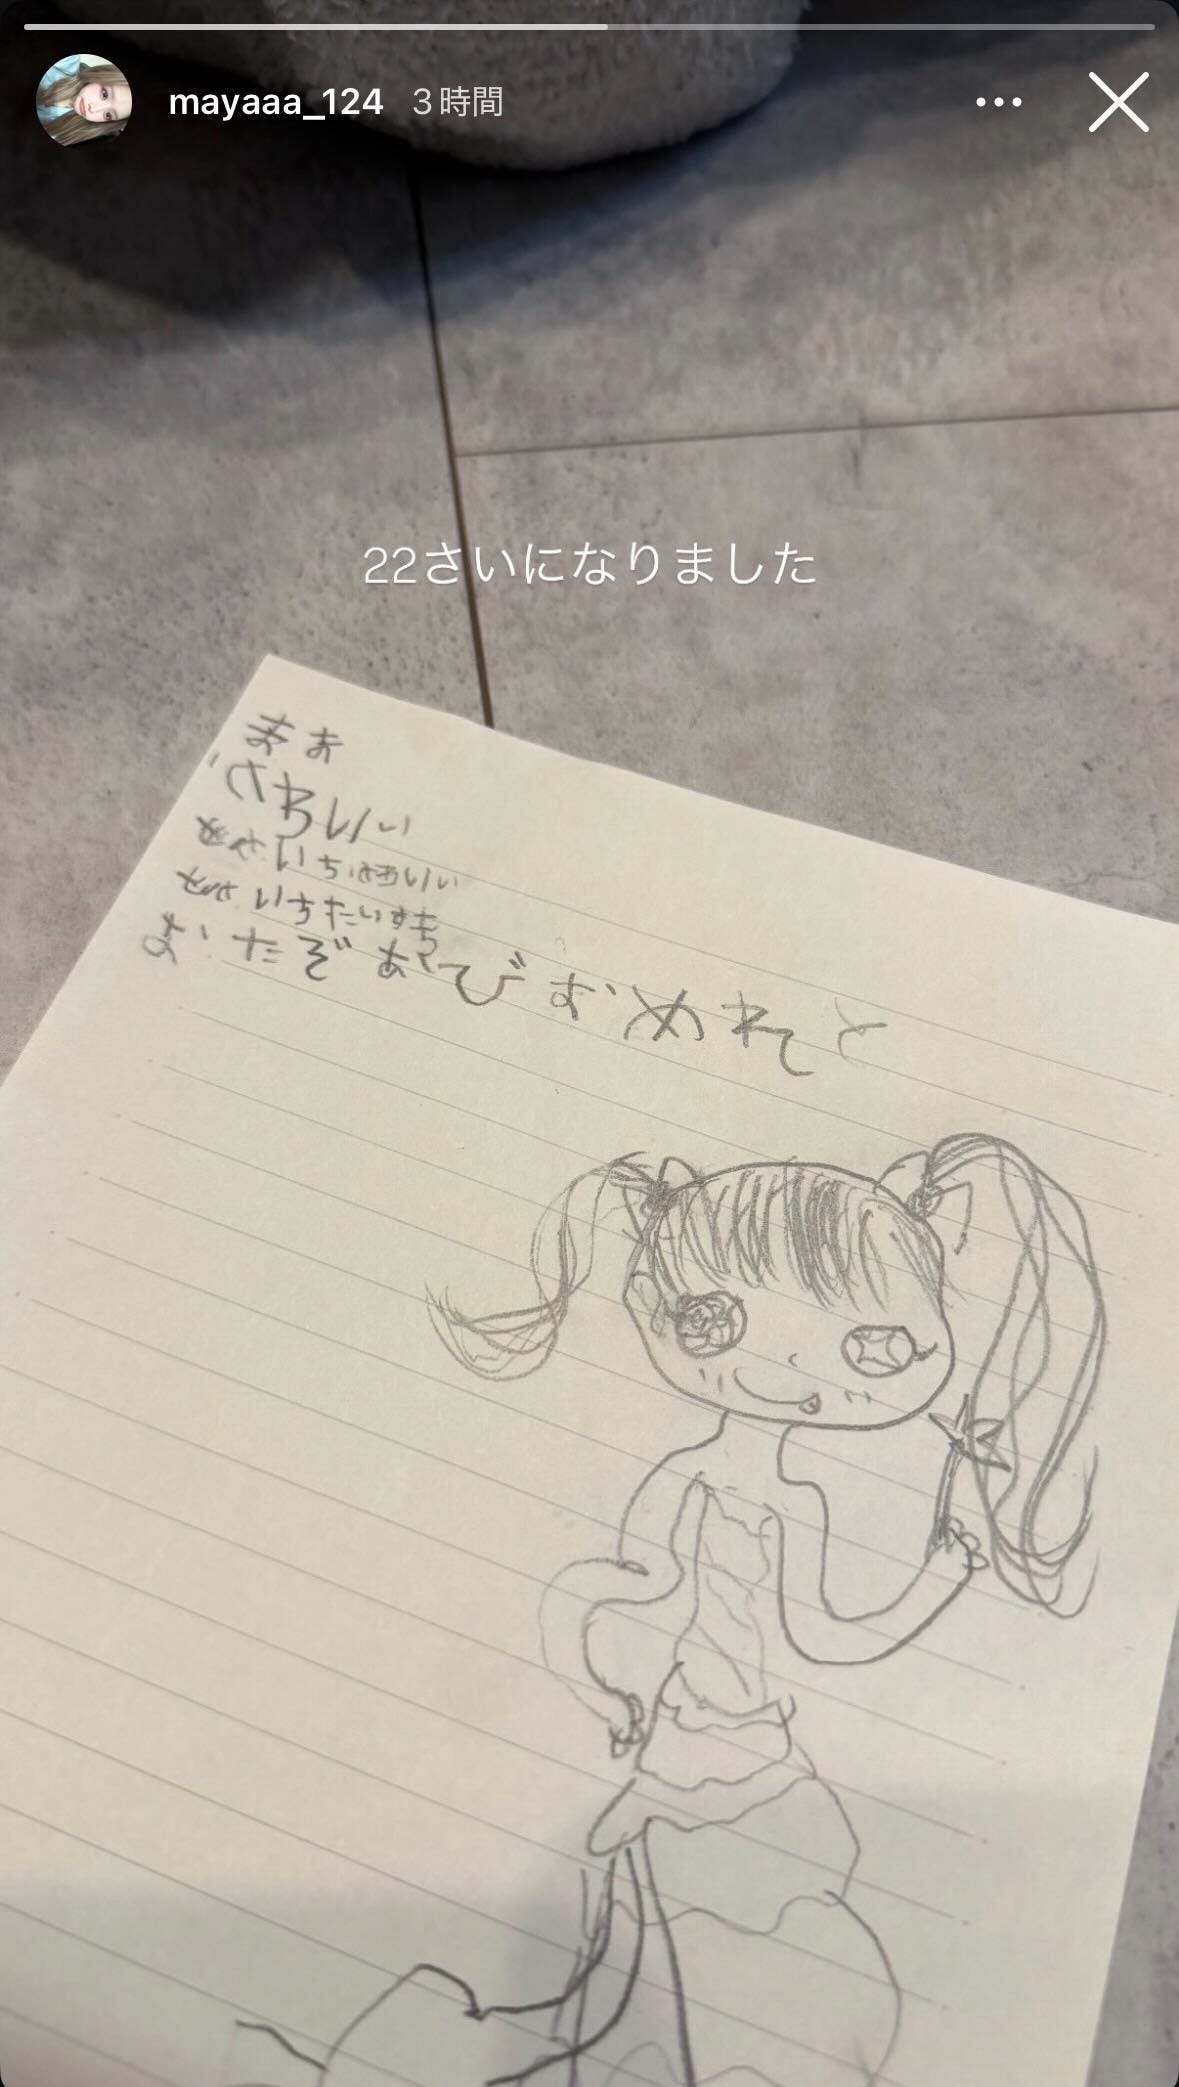 mayaaa_124 3時間
22さいになりました
まぁ
かわいい
せかいちかわいい
せかいちたいすき
おたぞおびおめれと